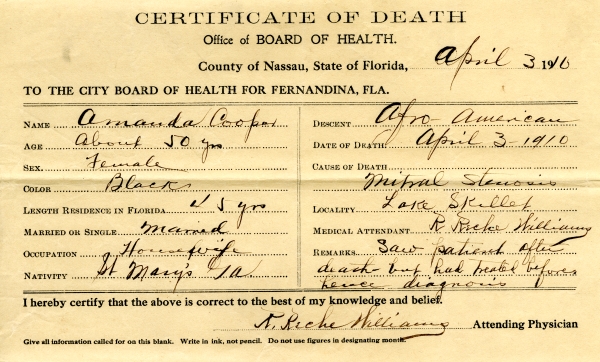 CERTIFICATE OF DEATH
Office of BOARD OF HEALTH.
County of Nassau, State of Florida, April 3 1910
TO THE CITY BOARD OF HEALTH FOR FERNANDINA, FLA.
NAME Amanda Cooper
AGE About 50 yrs
SEX. Female
COLOR Black
LENGTH RESIDENCE IN FLORIDA 45 yrs
MARRIED OR SINGLE Married
OCCUPATION Housewife
NATIVITY St Mary's Ga
DESCENT Afro American
DATE OF DEATH April 3-1910
CAUSE OF DEATH
Mitral Stenosis
LOCALITY Lake Skillet
MEDICAL ATTENDANT R. Reche Williams
REMARKS Saw patient after
death but had treated before
hence diagnosis
I hereby certify that the above is correct to the best of my knowledge and belief.
R. Reche Williams Attending Physician
Give all information called for on this blank. Write in ink, not pencil. Do not use figures in designating month.